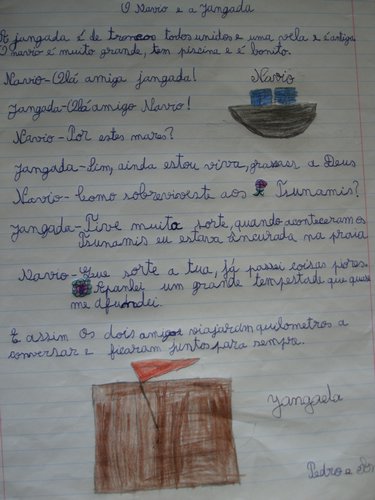 O Navio e a Jangada
A jangada é de troncos todos unidos e uma vela e é antiga
O navio é muito grande, tem piscina e é bonito.
Navio-Olá amiga jangada!
Navio
Jangada-Olá amigo Navio!
Navio-Por estes mares?
Jangada-Sim, ainda estou viva, graças a Deus
Navio-Como sobreviveste aos Tsunamis?
Jangada-Tive muita sorte, quando aconteceram os
Tsunamis eu estava ancurada na praia
Navio-Que sorte a tua, já passei coisas pores.
Apanhei um grande tempestade que quase
me afundei.
E assim os dois amigos viajaram quilometros a
conversar e ficaram juntos para sempre.
Jangada
Pedro e